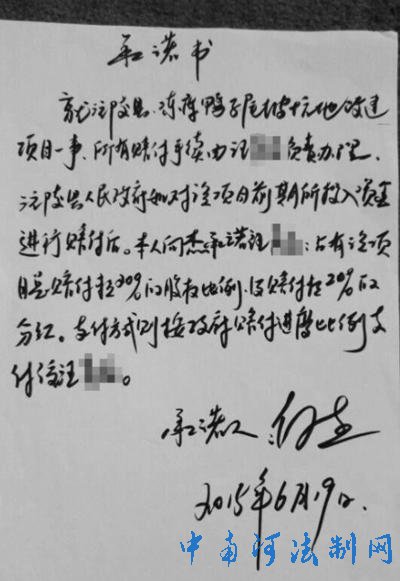 承诺书
就沅陵县
项目一事、所有赔付手续、由汪 负责办理、
沅陵县人民政府如对该项目前期所投入资金
进行赔付后。本人向杰承诺汪 :占有该项
目总赔付款30%的股权比例,
分红。支付方式则按政府赔付进度比例支
付给汪 。
承诺人:向杰
2015年6月19日.
中南河法制网